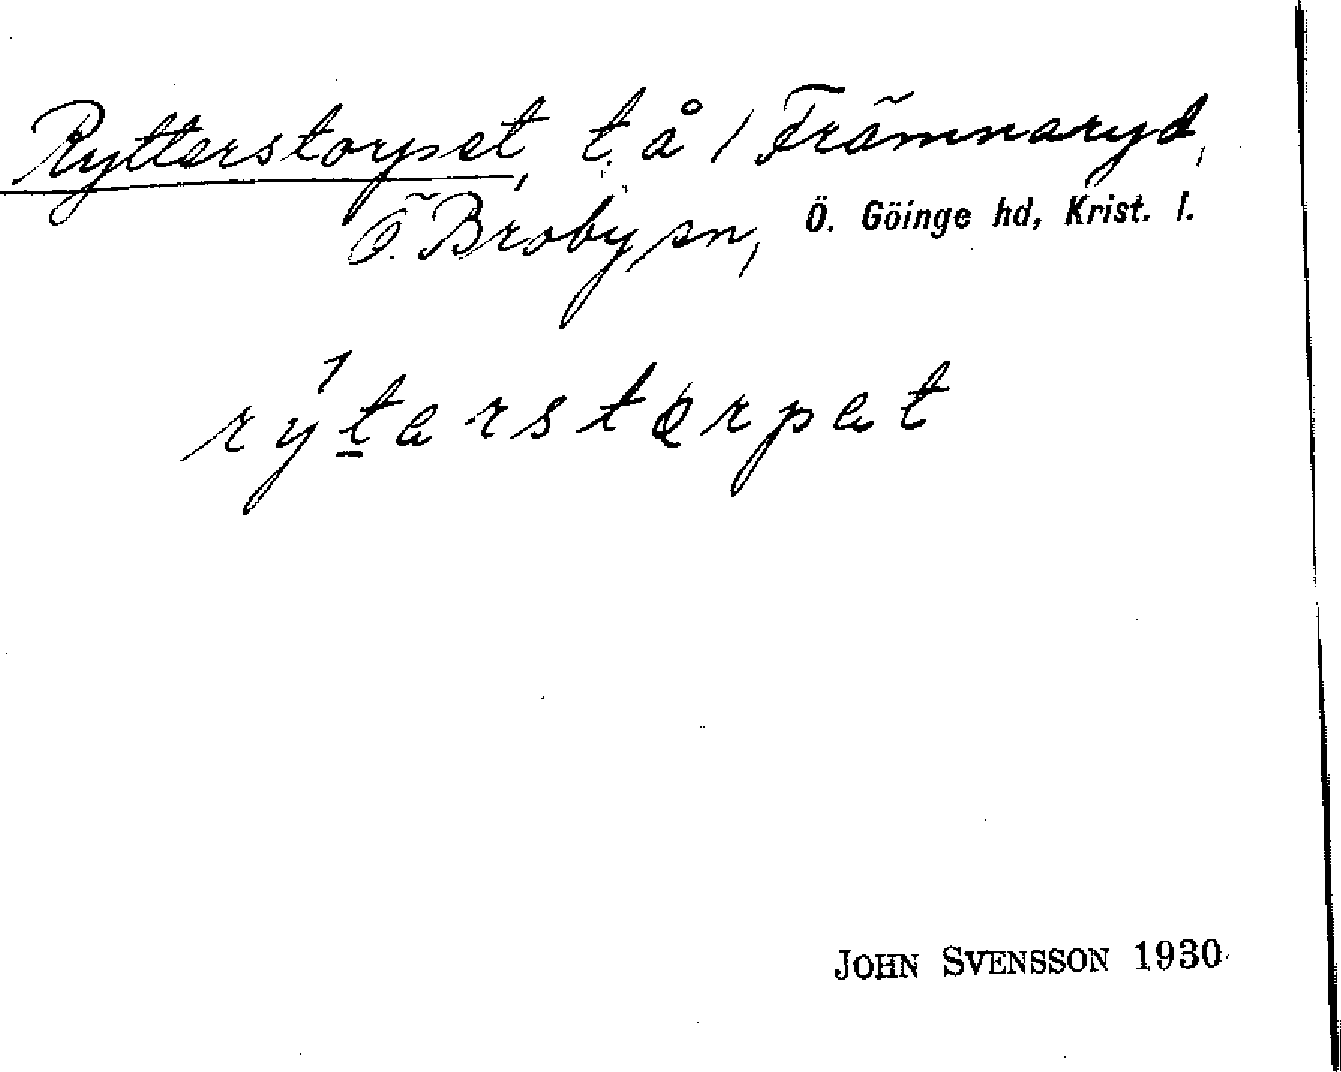 Rytterstorpet, t. å 1 Främnaryd,
Ö. Broby sn, Ö. Göinge hd, Krist. l.
rýterstorpet
JOHN SVENSSON 1930